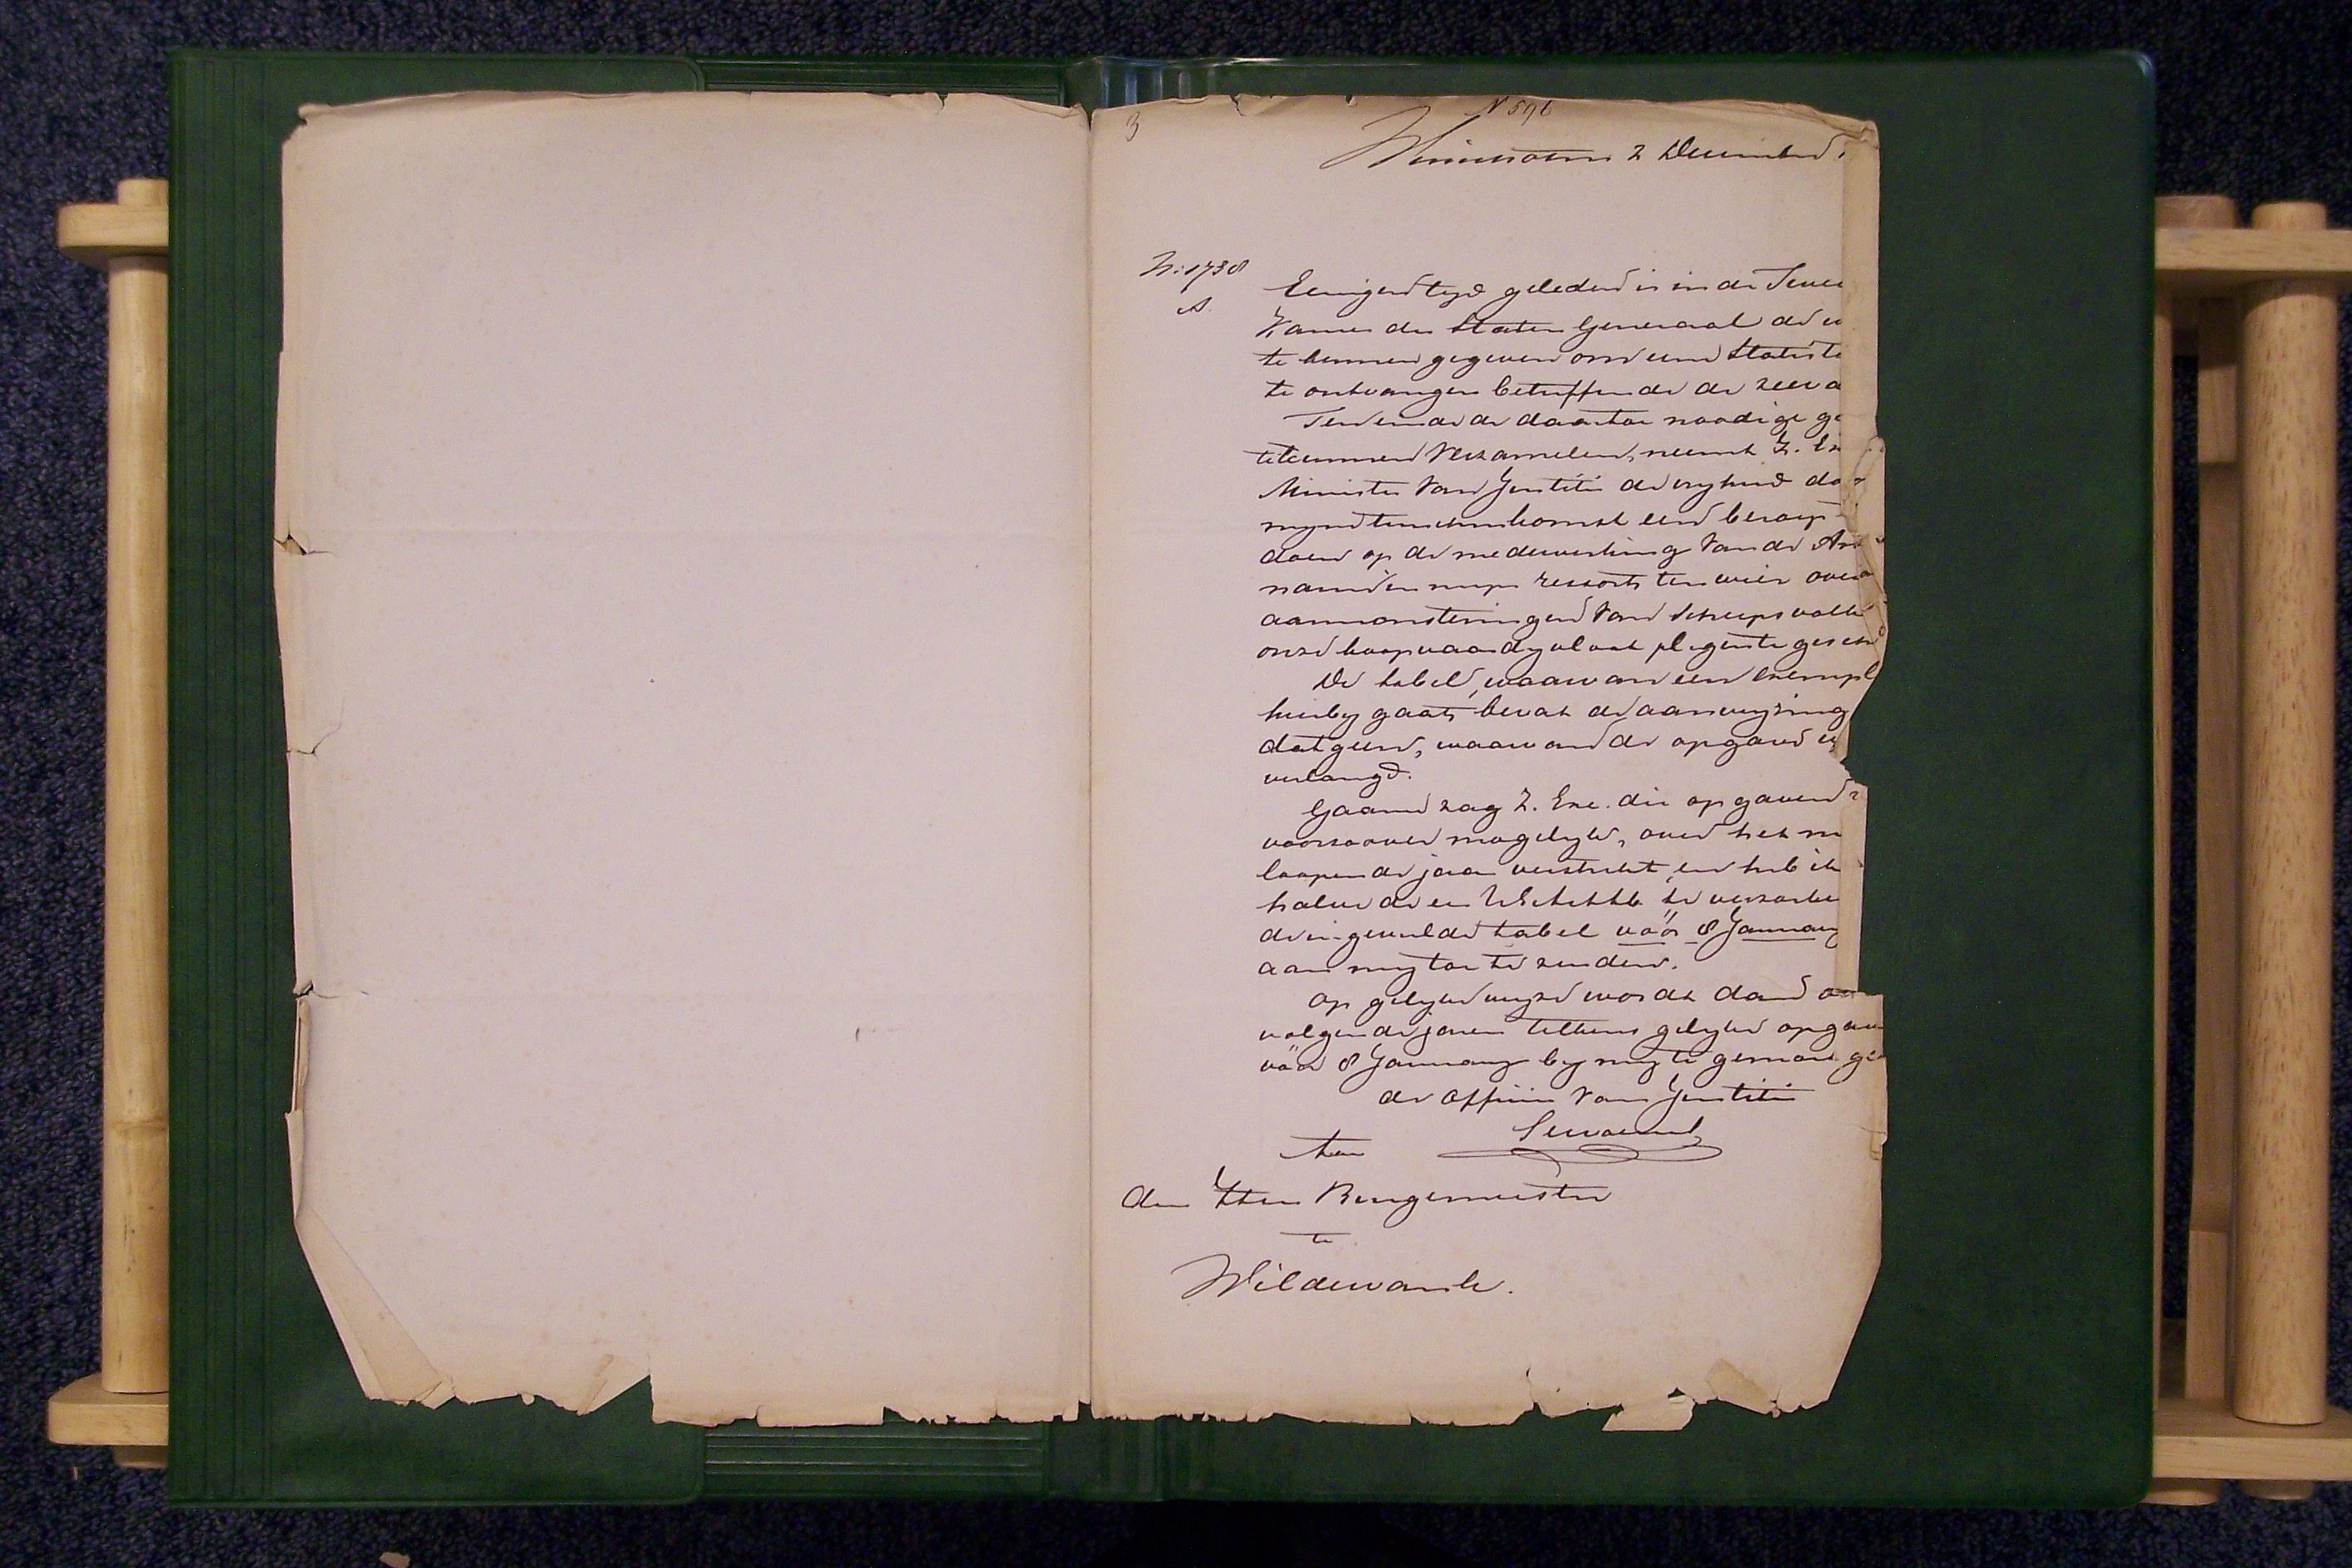 3
N 596
Winschoten 2 December
N: 1738
A.
Eenigen tijd geleden is in de Twee
Kamer der Staten Generaal de w
te kennen gegeven om eene Statisti
te ontvangen betreffende de zeeva
Ten einde de daartoe noodige ge
te kunnen verzamelen, neemt Z. Ex
Minister van Justitie de vryheid do
myne tusschenkomst een beroep
doen op de medewerking van de
in myn ressort ten wier over
aanmonsteringen van scheepsvolk
onze koopvaardyvloot plegen te gesch
De tabel, waarvan een exempl
hierby gaat, bevat de aanwyzing
datgene, waarvan de opgave w
verlangd.
Gaarne zag Z. Exc. die opgaven
voorzoover mogelyk, over het nu
loopende jaar verstrekt, en heb ik
halve de eer UEdAchtb te verzoeke
de ingevulde tabel vóór 8 January
aan my toe te zenden.
Op gelyke wyze wordt dan o
volgende jaren telkens gelyke opgave
vóór 8 January by my te gemoet ge
de Officier van Justitie
Aan
den Heer Burgemeester
te
Wildervank.